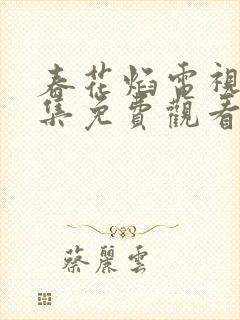 春花焰電視
集免費觀看
蔡麗雲